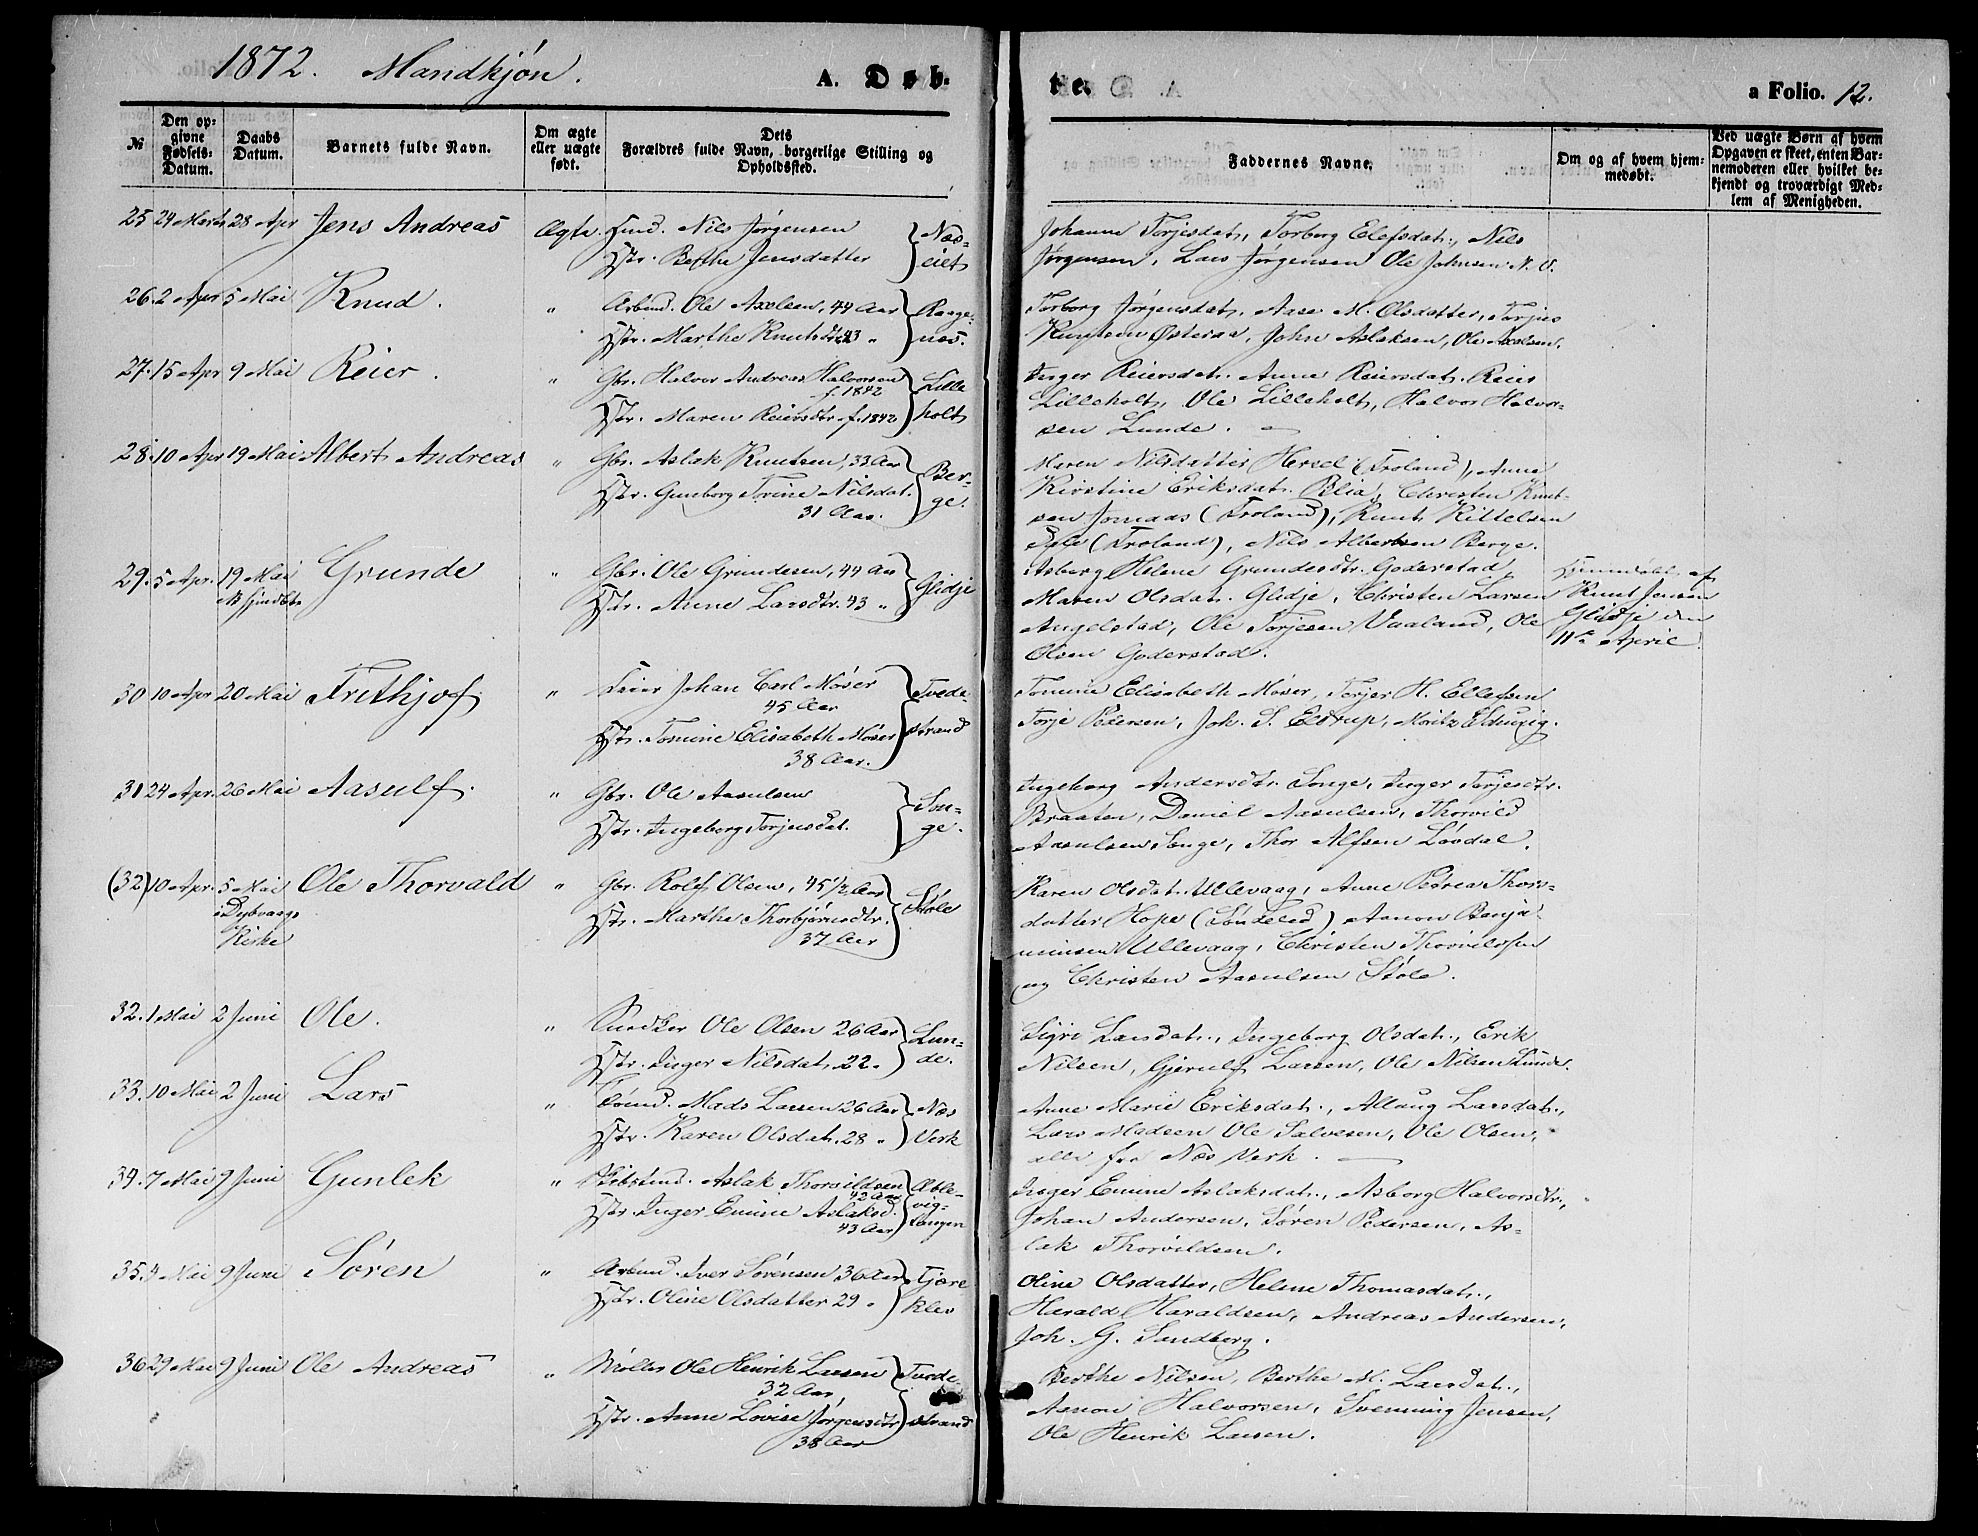 1872. Mandkjøn. A. Døb-
te.
a Folio. 12.
№
Den op-
givne
Fødsels-
Datum.
Daabs
Datum.
Barnets fulde Navn.
Om ægte
eller uægte
født.
Dets
Forældres fulde Navn, borgerlige Stilling og
Opholdssted.
Faddernes Navne.
Om og af hvem hjem-
medøbt.
Ved uægte Børn af hvem
Opgaven er skeet, enten Bar-
nemoderen eller hvilket be-
kjendt og troværdigt Med-
lem af Menigheden.
25 24 Marts 28 Apr Jens Andreas Ægte. Nils Jørgensen
Hstr. Berthe Jensdatter
Johanne Torjesdat., Torborg Elefsdat., Nils
Jørgensen, Lars Jørgensen Ole Johnsen N. V.
26. 2 Apr 5 Mai Knud. " Arbmd. Ole Axelsen, 44 Aar
Hstr. Marthe Knutsdtr. 43 "
Torborg Jørgensdat., Aase M. Olsdatter, Torjus
Knutsen Østeraa, John Aslaksen, Ole Axelsen.
27. 15 Apr 9 Mai Reier. " Gbr. Halvor Andreas Halvorsen
f. 1842
Hstr. Maren Reiersdtr. f. 1842
Lille
holt
Inger Reiersdat. Anne Reiersdat. Reier
Lilleholt, Ole Lilleholt, Halvor Halvor-
sen Lunde.
28. 10 Apr 19 Mai Albert Andreas " Gbr. Aslak Knutsen, 33 Aar
Hstr. Gunborg Torine Nilsdat.
31 Aar.
Ber-
ge.
Maren Nilsdatter Hersel (Froland), Anne
Kirstine Eriksdat. Blia, Christen Knut-
sen Jomaas (Froland), Knut Kittelsen
(Froland), Nils Albertsen Berge.
29. 5 Apr. 19 Mai Grunde " Gbr. Ole Grundesen, 44 Aar
Hstr. Anne Larsdtr. 43 "
Glidje
Asborg Helene Grundesdtr. Goderstad,
Maren Olsdat. Glidje, Christen Larsen
Angelstad, Ole Torjesen Vaaland, Ole
Olsen Goderstad.
Hjemdøbt af
Knut Jensen
Glidje den
11te April
30 10 Apr 20 Mai Frithjof " Feier Johan Carl Möser
45 Aar
Hstr. Tomine Elisabeth Möser
38 Aar.
Tvede-
strand
Tomine Elisabeth Möser, Terjer H. Ellefsen
Torje Pedersen, Joh. S. Elstrup, Moritz
31 24 Apr. 26 Mai Aasulf. " Gbr. Ole Aasulsen
Hstr. Ingeborg Torjusdat.
Son-
ge.
Ingeborg Andersdtr. Songe, Inger Torjesdtr.
Braaten, Daniel Aasulsen, Thorvild
Aasulsen Songe, Thor Alfsen Løvdal.
(32) 10 Apr. 5 Mai Ole Thorvald " Gbr. Rolef Olsen, 45 1/2 Aar
i Dybvaags
Kirke
Hstr. Marthe Thorbjørnsdtr.
37 Aar
Støle
Karen Olsdat. Ullevaag, Anne Petrea Thors-
datter Hope (Søndeled) Aanon Benja-
minsen Ullevaag, Christen Thorvildsen
og Christen Aasulsen Støle.
32. 1 Mai 2 Juni Ole. " Snedker Ole Olsen 26 Aar
Hstr. Inger Nilsdat. 22 "
Lun-
de.
Sigri Larsdat., Ingeborg Olsdat., Erik
Nilsen, Gjerulf Larsen, Ole Nilsen Lunde.
33. 10 Mai 2 Juni Lars " Mads Larsen 26 Aar
Hstr. Karen Olsdat. 28 "
Næs
Verk
Anne Marie Eriksdat., Allaug Larsdat.,
Lars Madsen Ole Salvesen, Ole Olsen,
alle fra Næs Verk.
34. 7 Mai 9 Juni Gunlek " Aslak Thorvildsen
42 Aar
Hstr. Inger Emine Aslaksd.
43 Aar
Inger Emine Aslaksdat., Asborg Halvorsdtr.,
Johan Andersen, Søren Pedersen, As-
lak Thorvildsen.
35. 4 Mai 9 Juni Søren " Arbmd. Iver Sørensen 36 Aar
Hstr. Oline Olsdatter 29 "
Tjøre
klev
Oline Olsdatter, Helene Thomasdat.,
Harald Haraldsen, Andreas Andersen,
Joh. G. Sandberg.
36 29 Mai 9 Juni Ole Andreas " Møller Ole Henrik Larsen
32 Aar,
Hstr. Anne Lovise Jørgensdtr
38 Aar
Tvede-
strand
Berthe Nilsen, Berthe M. Larsdat.,
Aanon Halvorsen, Svenning Jensen,
Ole Henrik Larsen.